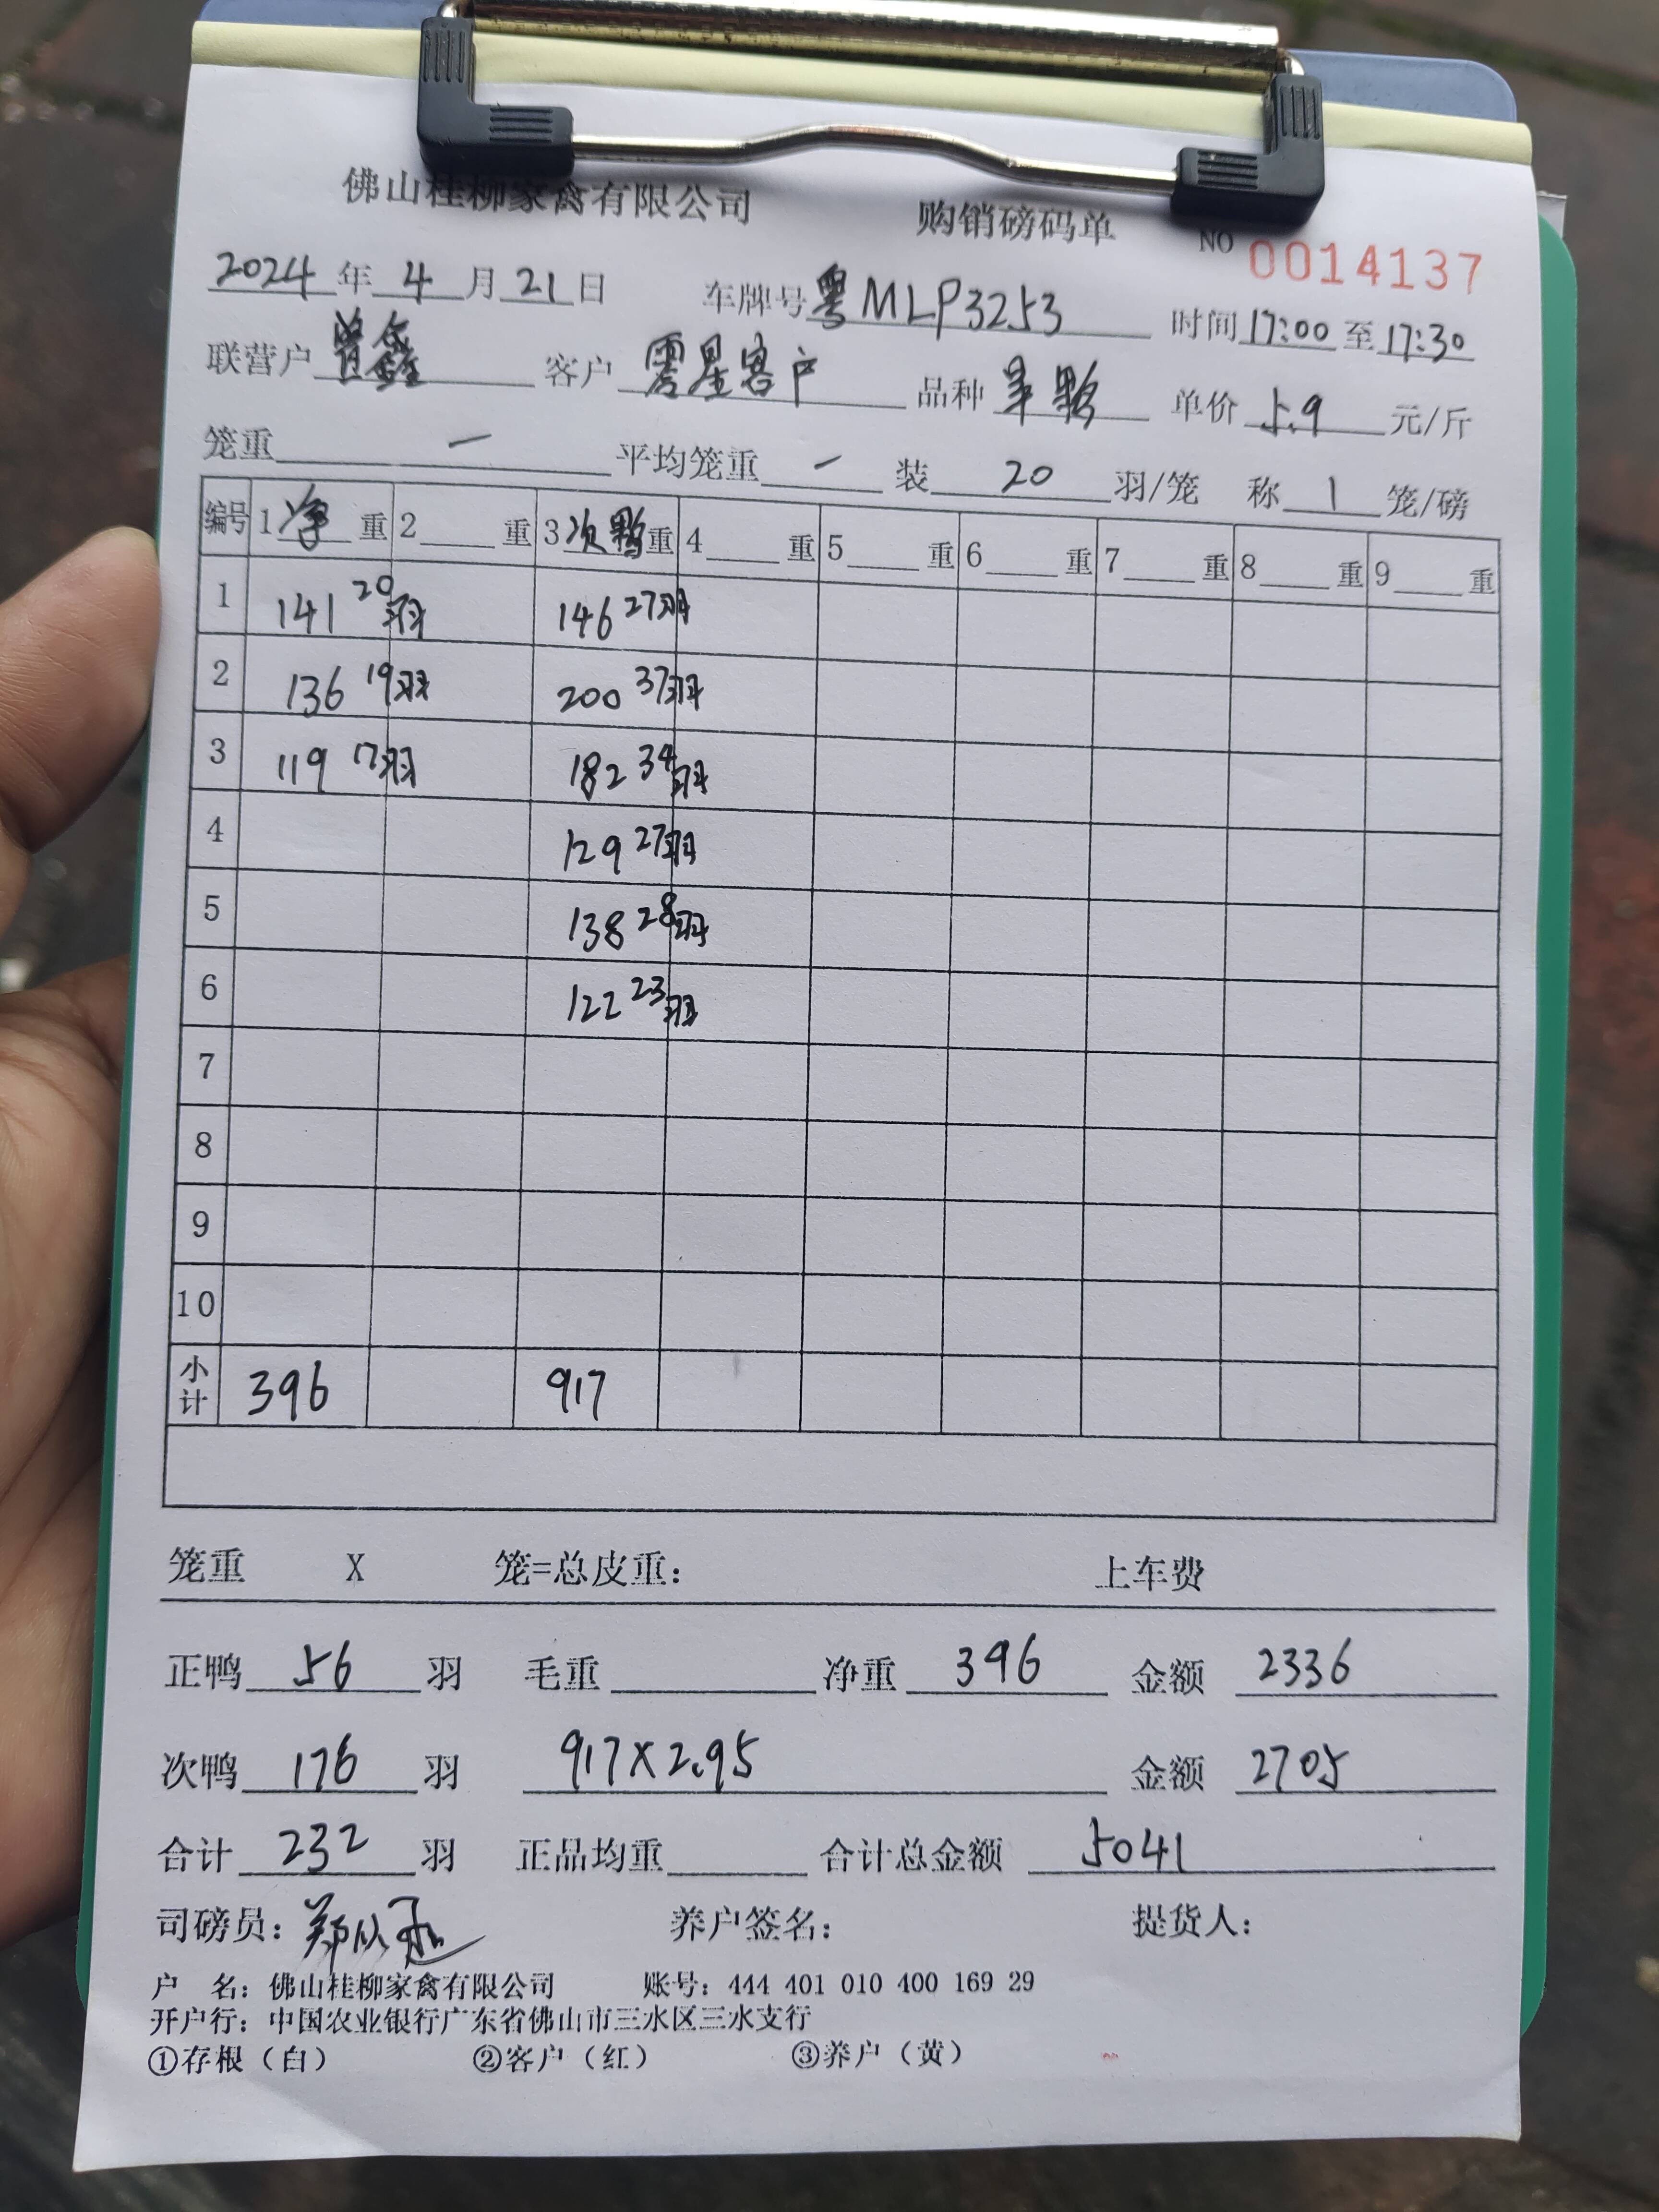 佛山桂柳家禽有限公司 购销磅码单 NO 0014137
2024 年 4 月 21 日 车牌号 粤MLP3253 时间 17:00 至 17:30
联营户 曾鑫 客户 零星客户 品种 单价 5.9 元/斤
笼重 一 平均笼重 一 装 20 羽/笼 称 1 笼/磅
编号 1 净 重 2 重 3 次鸭 重 4 重 5 重 6 重 7 重 8 重 9 重
1 141 20羽 146 27羽
2 136 19羽 200 37羽
3 119 17羽 182 34羽
4 129 27羽
5 138 28羽
6 122 23羽
7
8
9
10
小计 396 917
笼重 X 笼=总皮重: 上车费
正鸭 56 羽 毛重 净重 396 金额 2336
次鸭 176 羽 917×2.95 金额 2705
合计 232 羽 正品均重 合计总金额 5041
司磅员: 养户签名: 提货人:
户 名: 佛山桂柳家禽有限公司 账号: 444 401 010 400 169 29
开户行: 中国农业银行广东省佛山市三水区三水支行
①存根(白) ②客户(红) ③养户(黄)